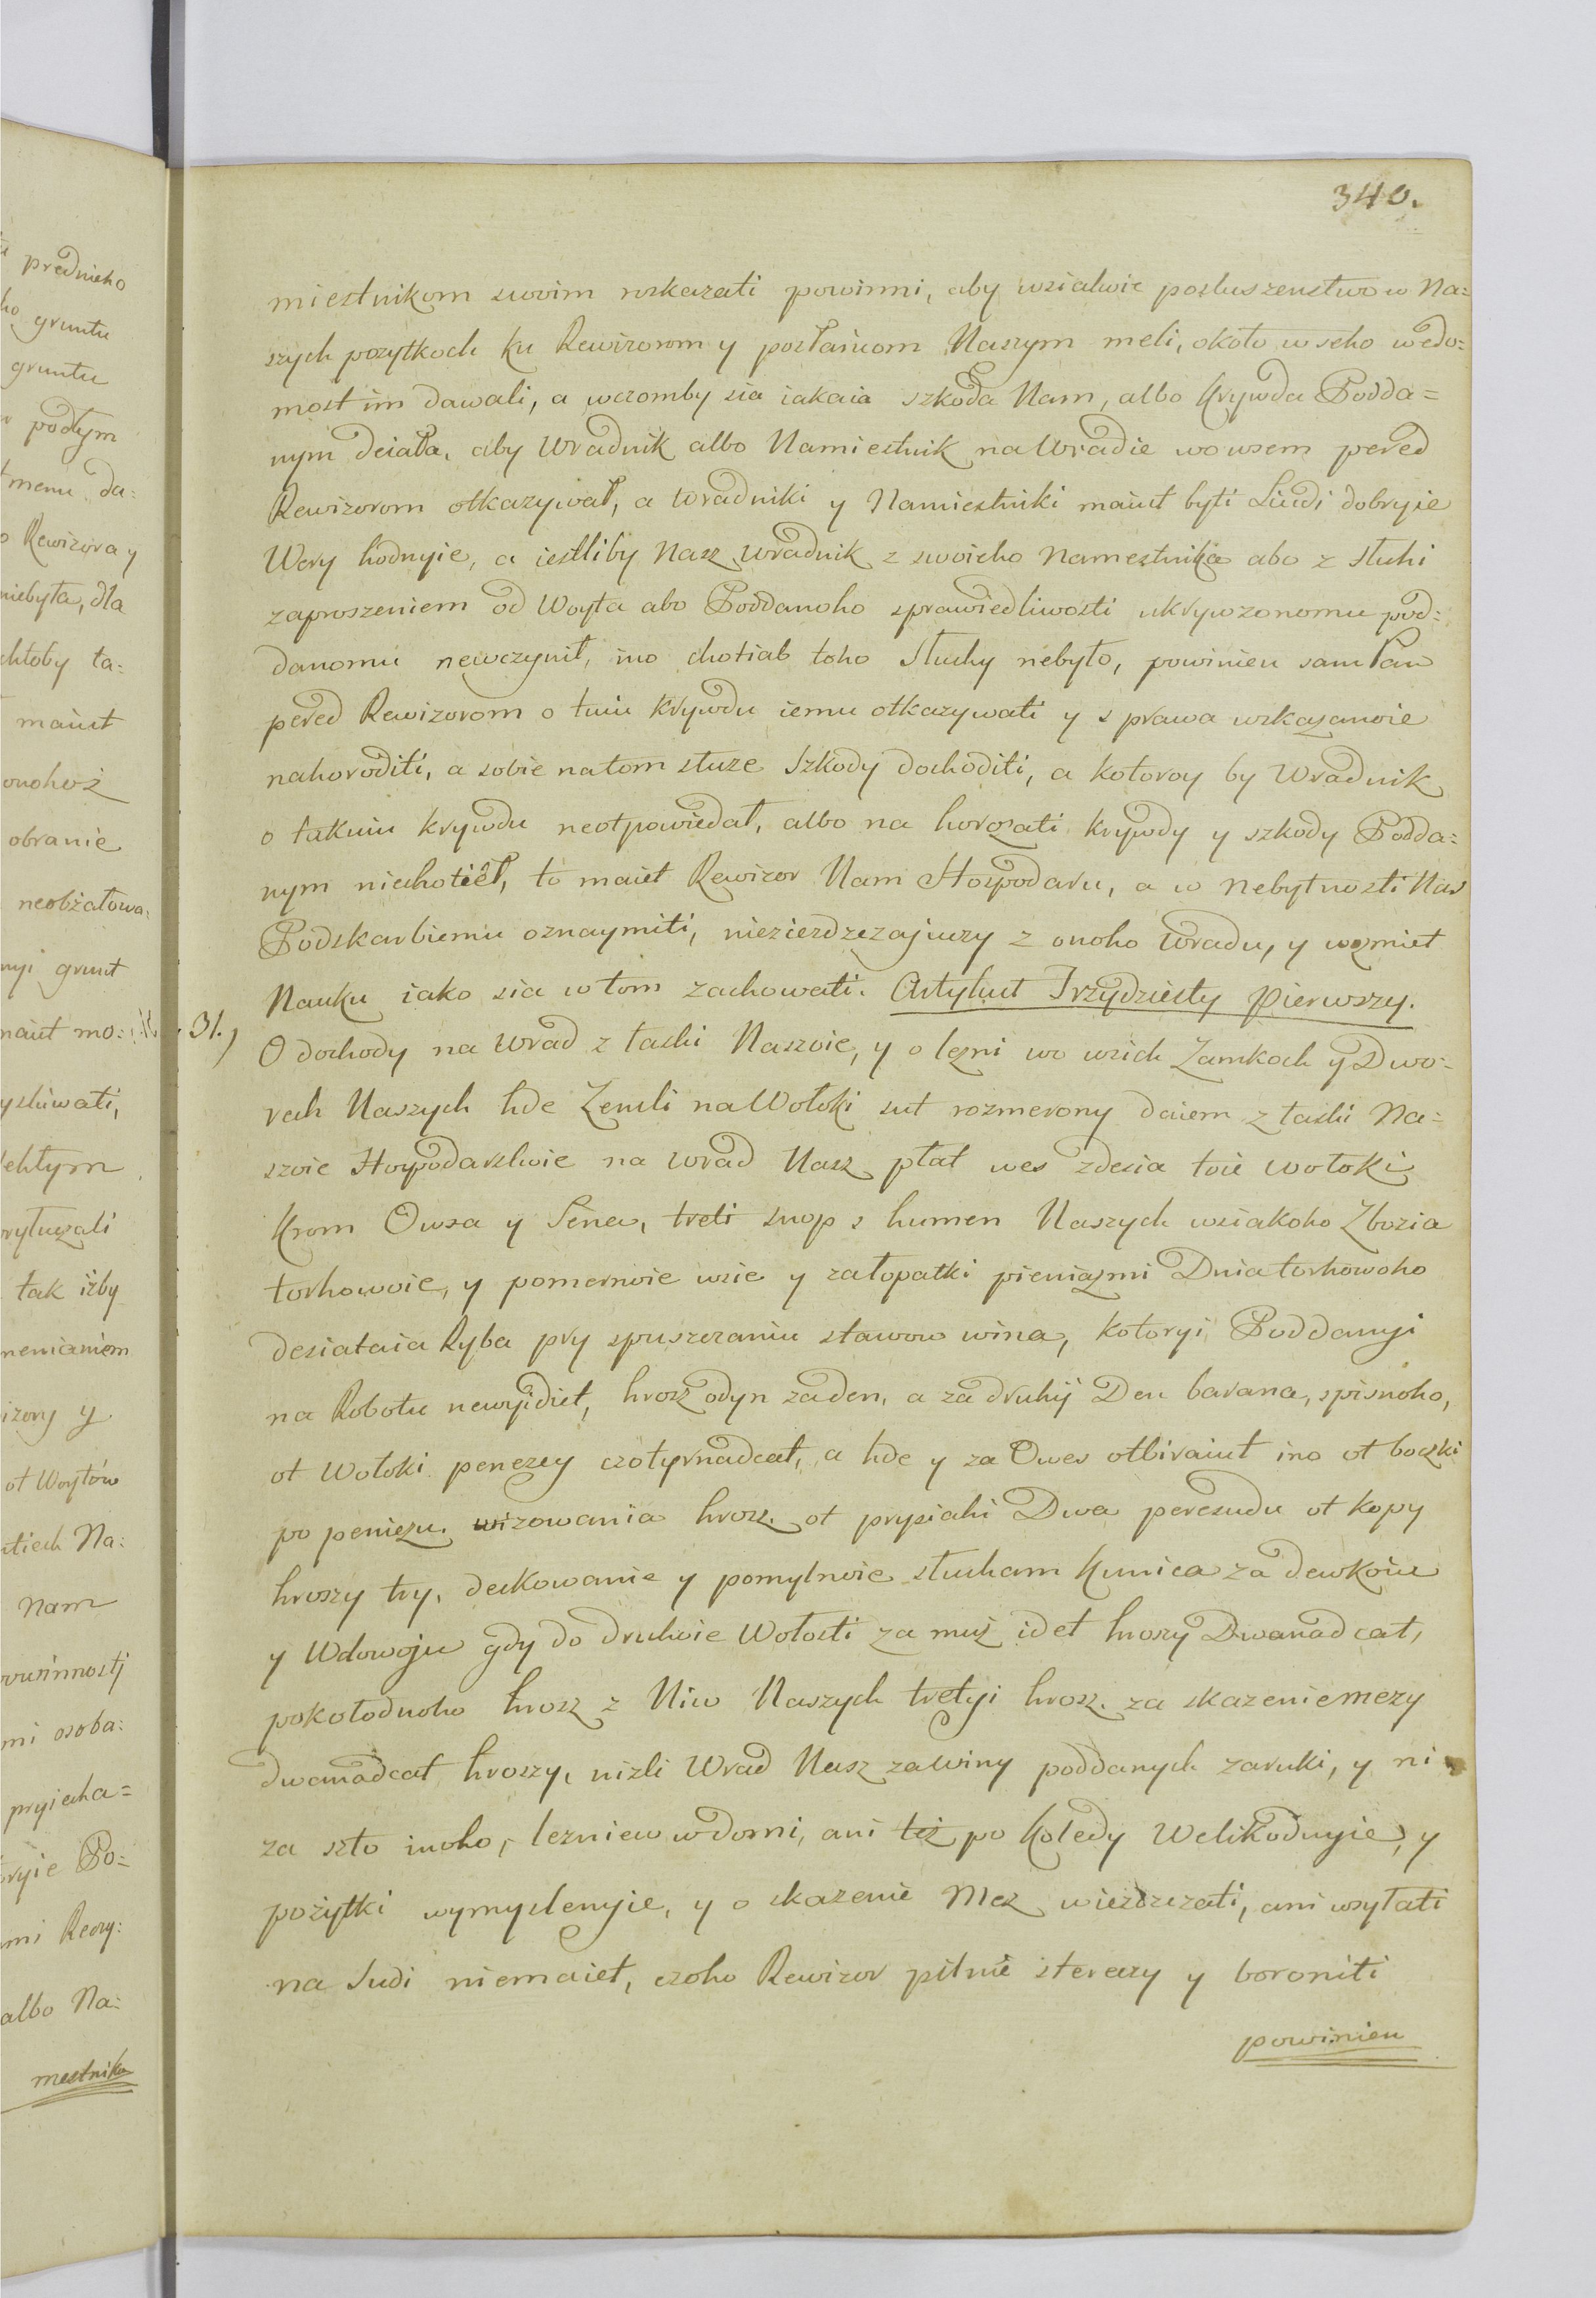 340.
miestnikom swoim roskazati powinni, aby wsialwie posłuszenstwo w Na=
szych pozytkoch ku Rewizorom y posłańcom Naszym meli, około wseho wedo=
most im dawali, a wczomby sia iakaia szkoda Nam, albo Krywda Podda=
nym deiała, aby Wradnik albo Namiestnik na Wradie wo wsem pered
Rewizorom otkazywał, a Wradniki y Namiestniki maiut byti Liudi dobryie
Wery hodnyie, a iestliby Nasz Wradnik z swoieho Namestnika abo z słuhi
zaproszeniem od Woyta abo Poddanoho sprawiedliwosti ukrywzonomu pod=
danomu newczynił, ino chotiab toho Słuhy nebyło, powinien sam Pan
pered Rewizorom o tuiu Krywdu iemu otkazywati y s prawa wskazanoie
nahoroditi, a sobie natom słuze Szkody dochoditi, a kotoroy by Wradnik
o takuiu krywdu neotpowiedał, albo na horozati krywdy y szkody Podda=
nym niechotieł, to maiet Rewizor Nam Hospodaru, a w Nebytnosti Nas
Podskarbiemu oznaymiti, niezierdzezajuczy z onoho Wradu, y wozmiet
Nauku iako sia w tom zachowati. Artykuł Trzydziesty Pierwszy.
31.) O dochody na Wrad z łaski Naszoie, y o lezni wo wsich Zamkoch y Dwo=
rach Naszych hde Zemli na Wołoki sut rozmerony daiem z łaski Na=
szoie Hospodarskoie na Wrad Nasz płat wes zdesia toie Wołoki
Krom Owsa y Sena, treti snop s humen Naszych wsiakoho Zbozia
torhowoie, y pomernoie wsie y załopatki pieniazmi Dnia torhowoho
desiataia Ryba pry spuszczaniu stawow wina, kotoryi Poddanyi
na Robotu newyidiet, hrosz odyn zaden, a za druhij Den barana, spisnoho,
ot Wołoki penezey czotyrnadcat, a hde y za Owes otbiraiut ino ot boczki
po peniezu. wizowania hrosz. ot prysiahi Dwa peresudu ot kopy
hroszy try, deckowanie y pomylnoie słuham Kunica za dewkoiu
y Wdowoju gdy do druhoie Wołosti za muż idet hroszy Dwanadcat,
pokołodnoho hrosz z Niw Naszych tretyi hrosz. za skazenie mezy
dwanadcat hroszy, nizli Wrad Nasz zawiny poddanych zaruki, y ni
za szto inoho, lezniew wdomi, ani też po Koledy Welikodnyie, y
pożytki wymyslenyie, y o skazenie Mez wiezdzczati, ani wsyłati
na Sudi niemaiet, czoho Rewizor pilnie stereczy y boroniti
powinien
prednieho
ho gruntu
gruntu
podłym
menu da:
Rewizora y
niebyła, dla
chtoby ta:
maiut
onohoż
obranie
neobżałowa:
nyi grunt
maiut mo:
tak iżby
ot Woytów
Na:
Nam
mi osoba:
pryiecha=
Po=
albo Na:
mestnika